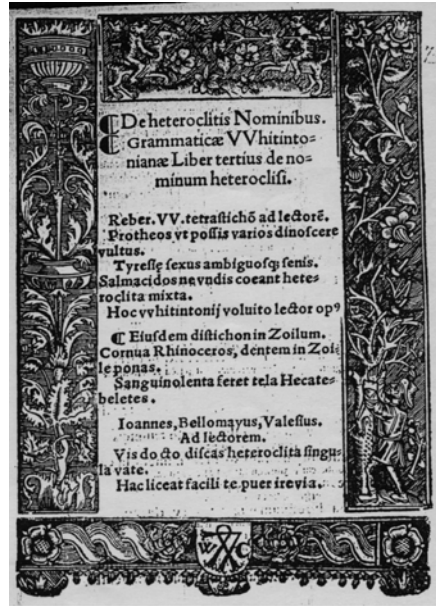 ⸿ De heteroclitis Nominibus.
⸿ Grammaticæ VVhitinto=
nianæ Liber tertius de no=
minum heteroclisi.
Rober. VV. tetrastichō ad lectorē.
Protheos vt possis varios dinoscere
vultus.
Tyresię sexus ambiguosq; senis.
Salmacidos ne vndis coeant hete=
roclita mixta.
Hoc vvhitintonij voluito lector opꝰ
⸿ Eiusdem distichon in Zoilum.
Cornua Rhinoceros, dentem in Zoi
le ponas.
Sanguinolenta feret tela Hecate=
beletes.
Ioannes, Bellomayus, Valesius.
Ad lectorem.
Vis docto discas heteroclita singu=
la vate.
Hac liceat facili te puer ire via.
W C